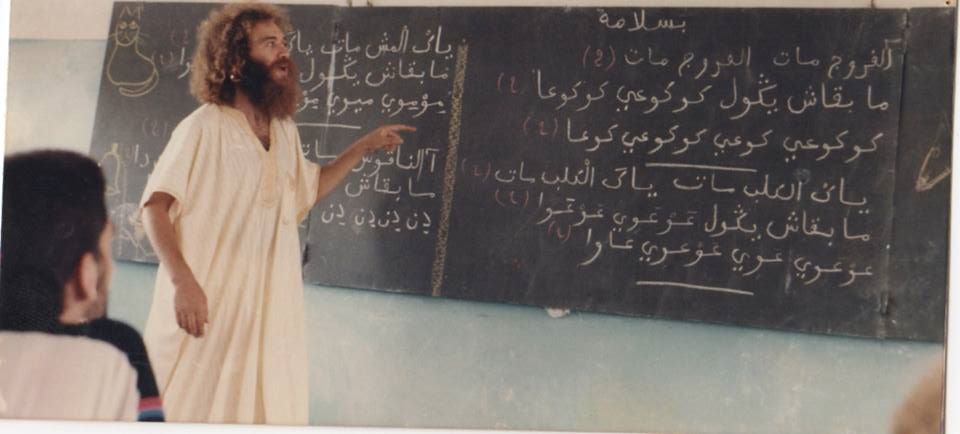 بسلامة
آلفروج مات الفروج مات (٤)
ما بقاش يڭول كوكوعي كوكوعا (٤)
كوكوعي كوعي كوكوعي كوعا (٤)
ياك الكلب مات ياك الكلب مات (٤)
ما بقاش يڭول عوعوي عوعوا (٤)
عوعوي عوي عوعوي عاوا
ياك المش مات ياك
ما بقاش يڭول
ميوميوي ميوي
آالناقوس مات
ما بقاش
دن دن دن دن